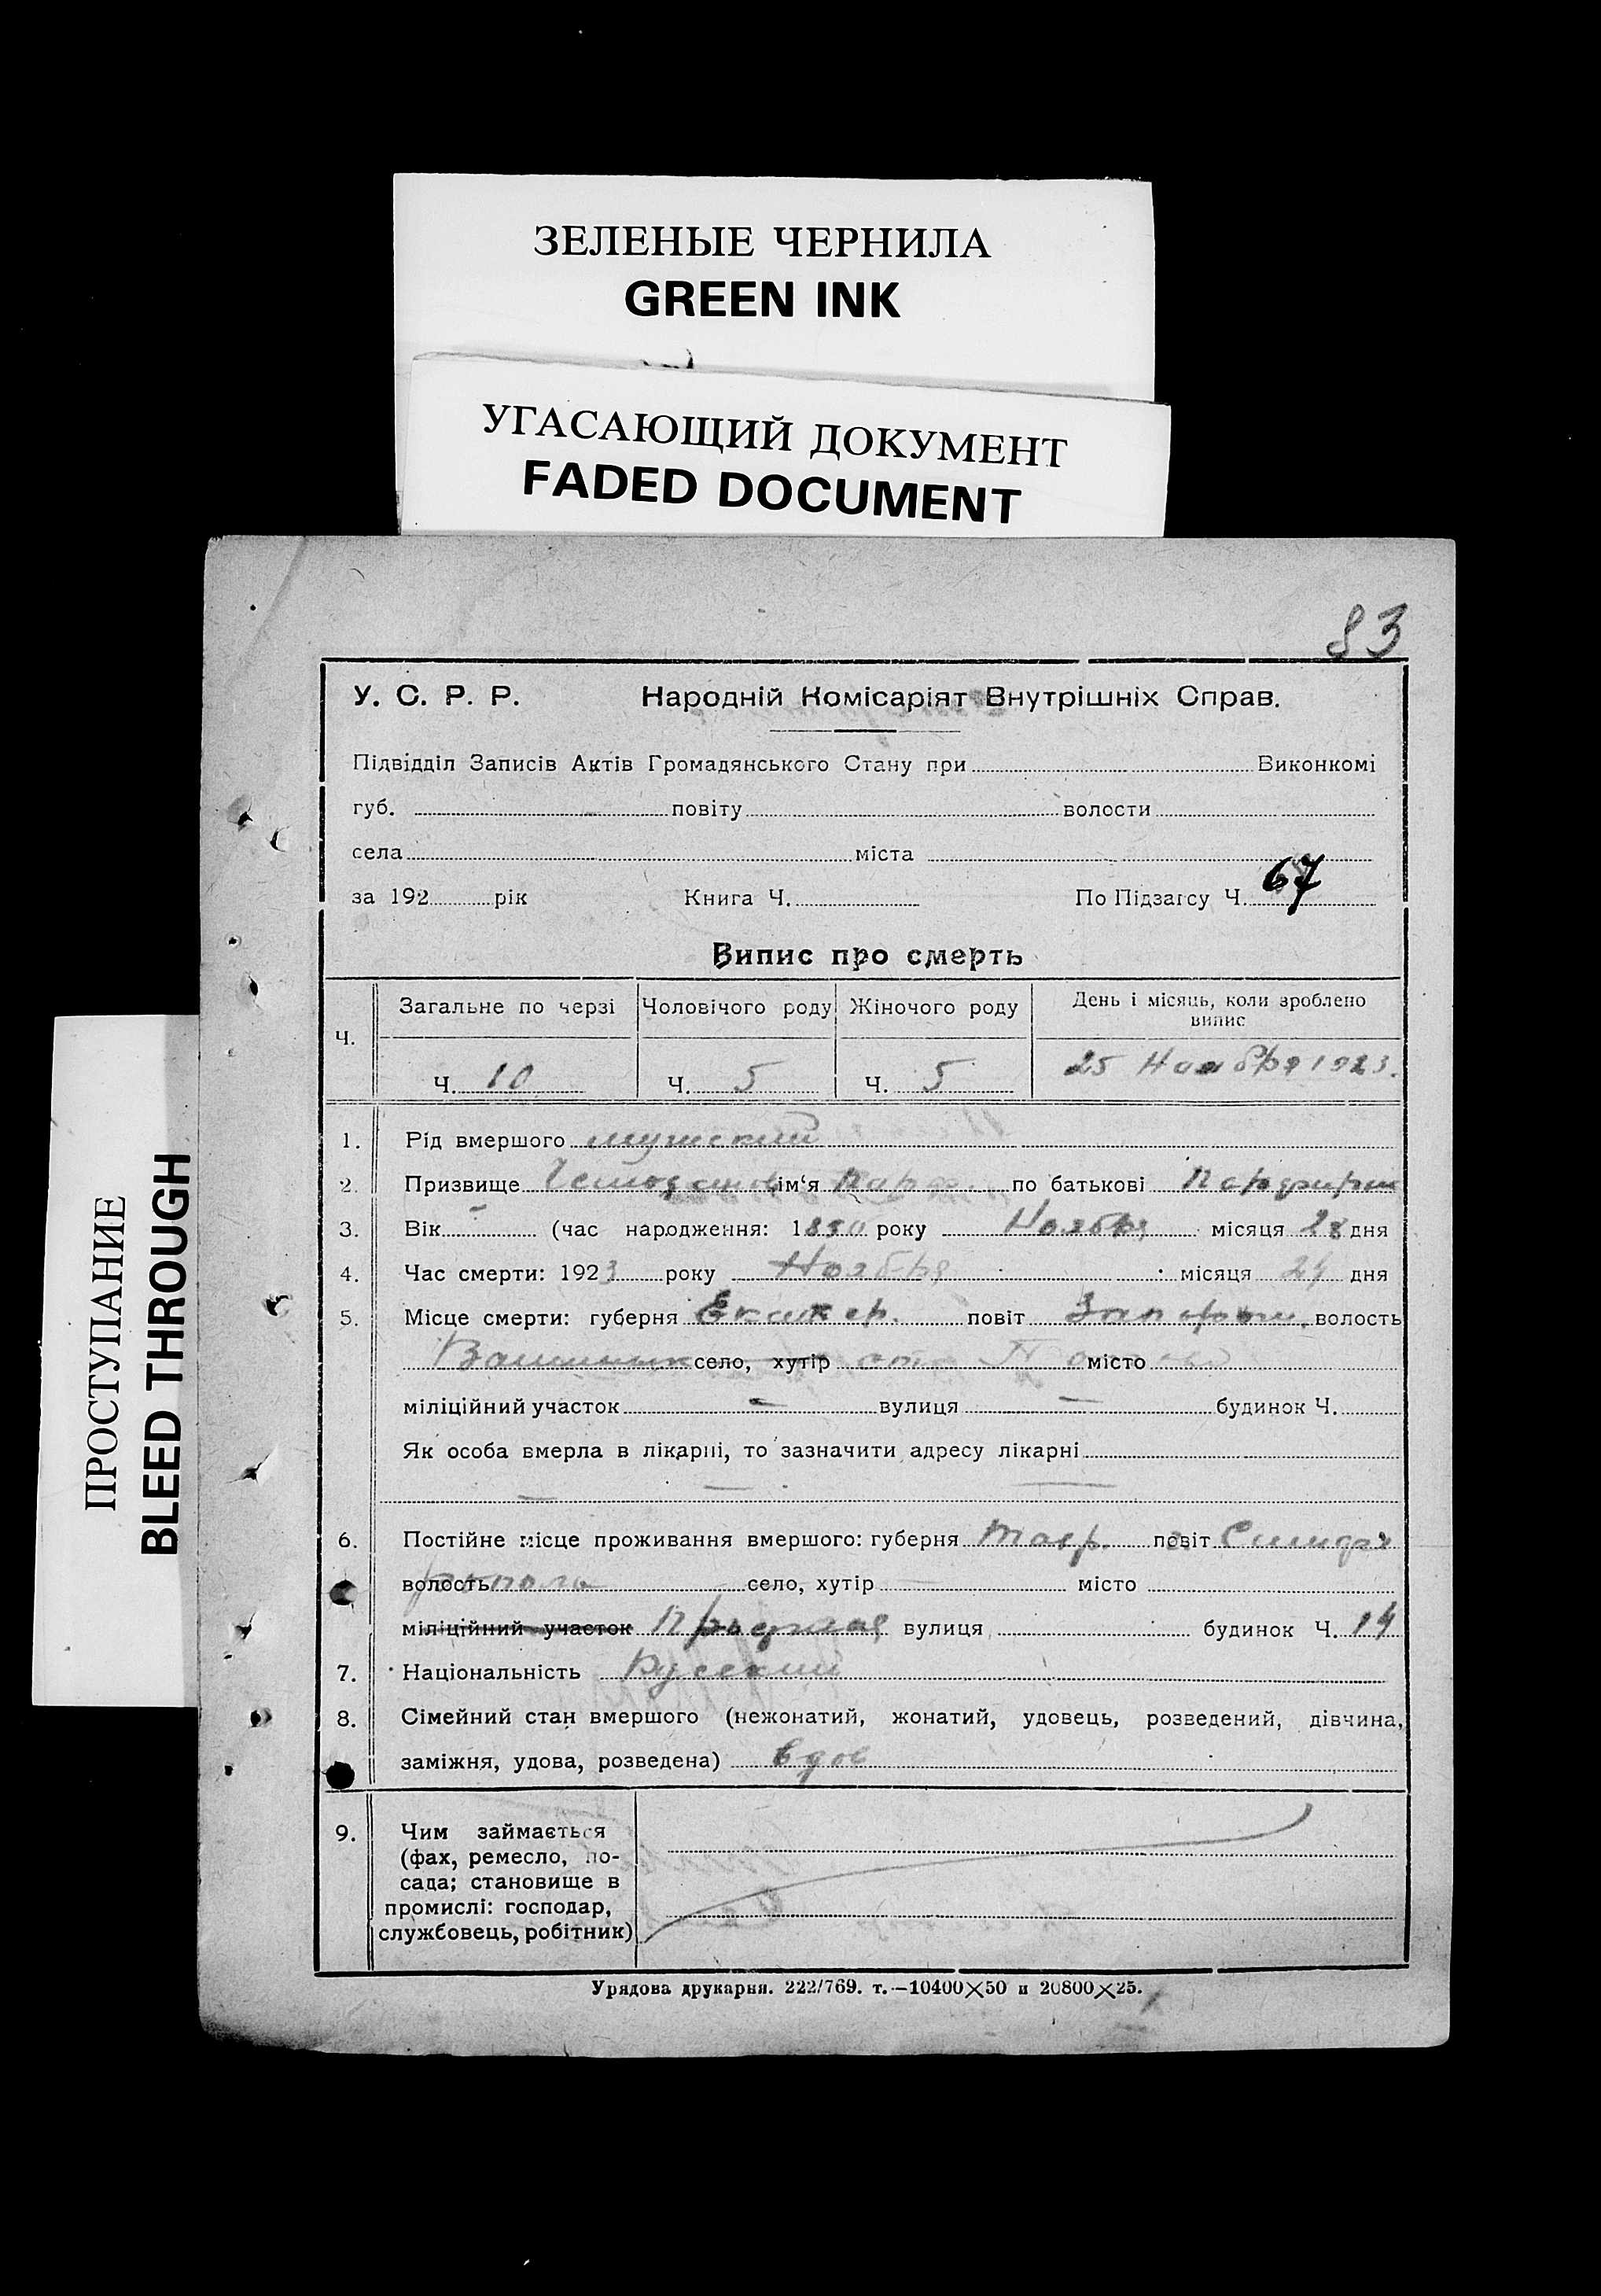 ЗЕЛЕНЫЕ ЧЕРНИЛА
GREEN INK
УГАСАЮЩИЙ ДОКУМЕНТ
FADED DOCUMENT
ПРОСТУПАНИЕ
BLEED THROUGH
83
У. С. Р. Р. Народній Комісаріят Внутрішніх Справ.
Підвідділ Записів Актів Громадянського Стану при Виконкомі
губ. повіту волости
села міста
за 192 рік Книга Ч. По Підзагсу Ч. 67
Випис про смерть
Ч. Загальне по черзі Чоловічого роду Жіночого роду День і місяць, коли зроблено
випис
Ч. 10 Ч. 5 Ч. 5 25 Ноября 1923.
1. Рід вмершого мужский
2. Призвище ім‘я по батькові
3. Вік (час народження: 1850 року Ноября місяця 28 дня
4. Час смерти: 1923 року Ноября місяця 24 дня
5. Місце смерти: губерня Екатер. повіт волость
село, хутір місто
міліційний участок — вулиця — будинок Ч.
Як особа вмерла в лікарні, то зазначити адресу лікарні
— — —
6. Постійне місце проживання вмершого: губерня Тавр. повіт
волость село, хутір місто
міліційний участок вулиця будинок Ч. 14
7. Національність Русский
8. Сімейний стан вмершого (нежонатий, жонатий, удовець, розведений, дівчина,
заміжня, удова, розведена) вдов
9. Чим займається
(фах, ремесло, по-
сада; становище в
промислі: господар,
службовець, робітник)
Урядова друкарня. 222/769. т.—10400×50 и 20800×25.